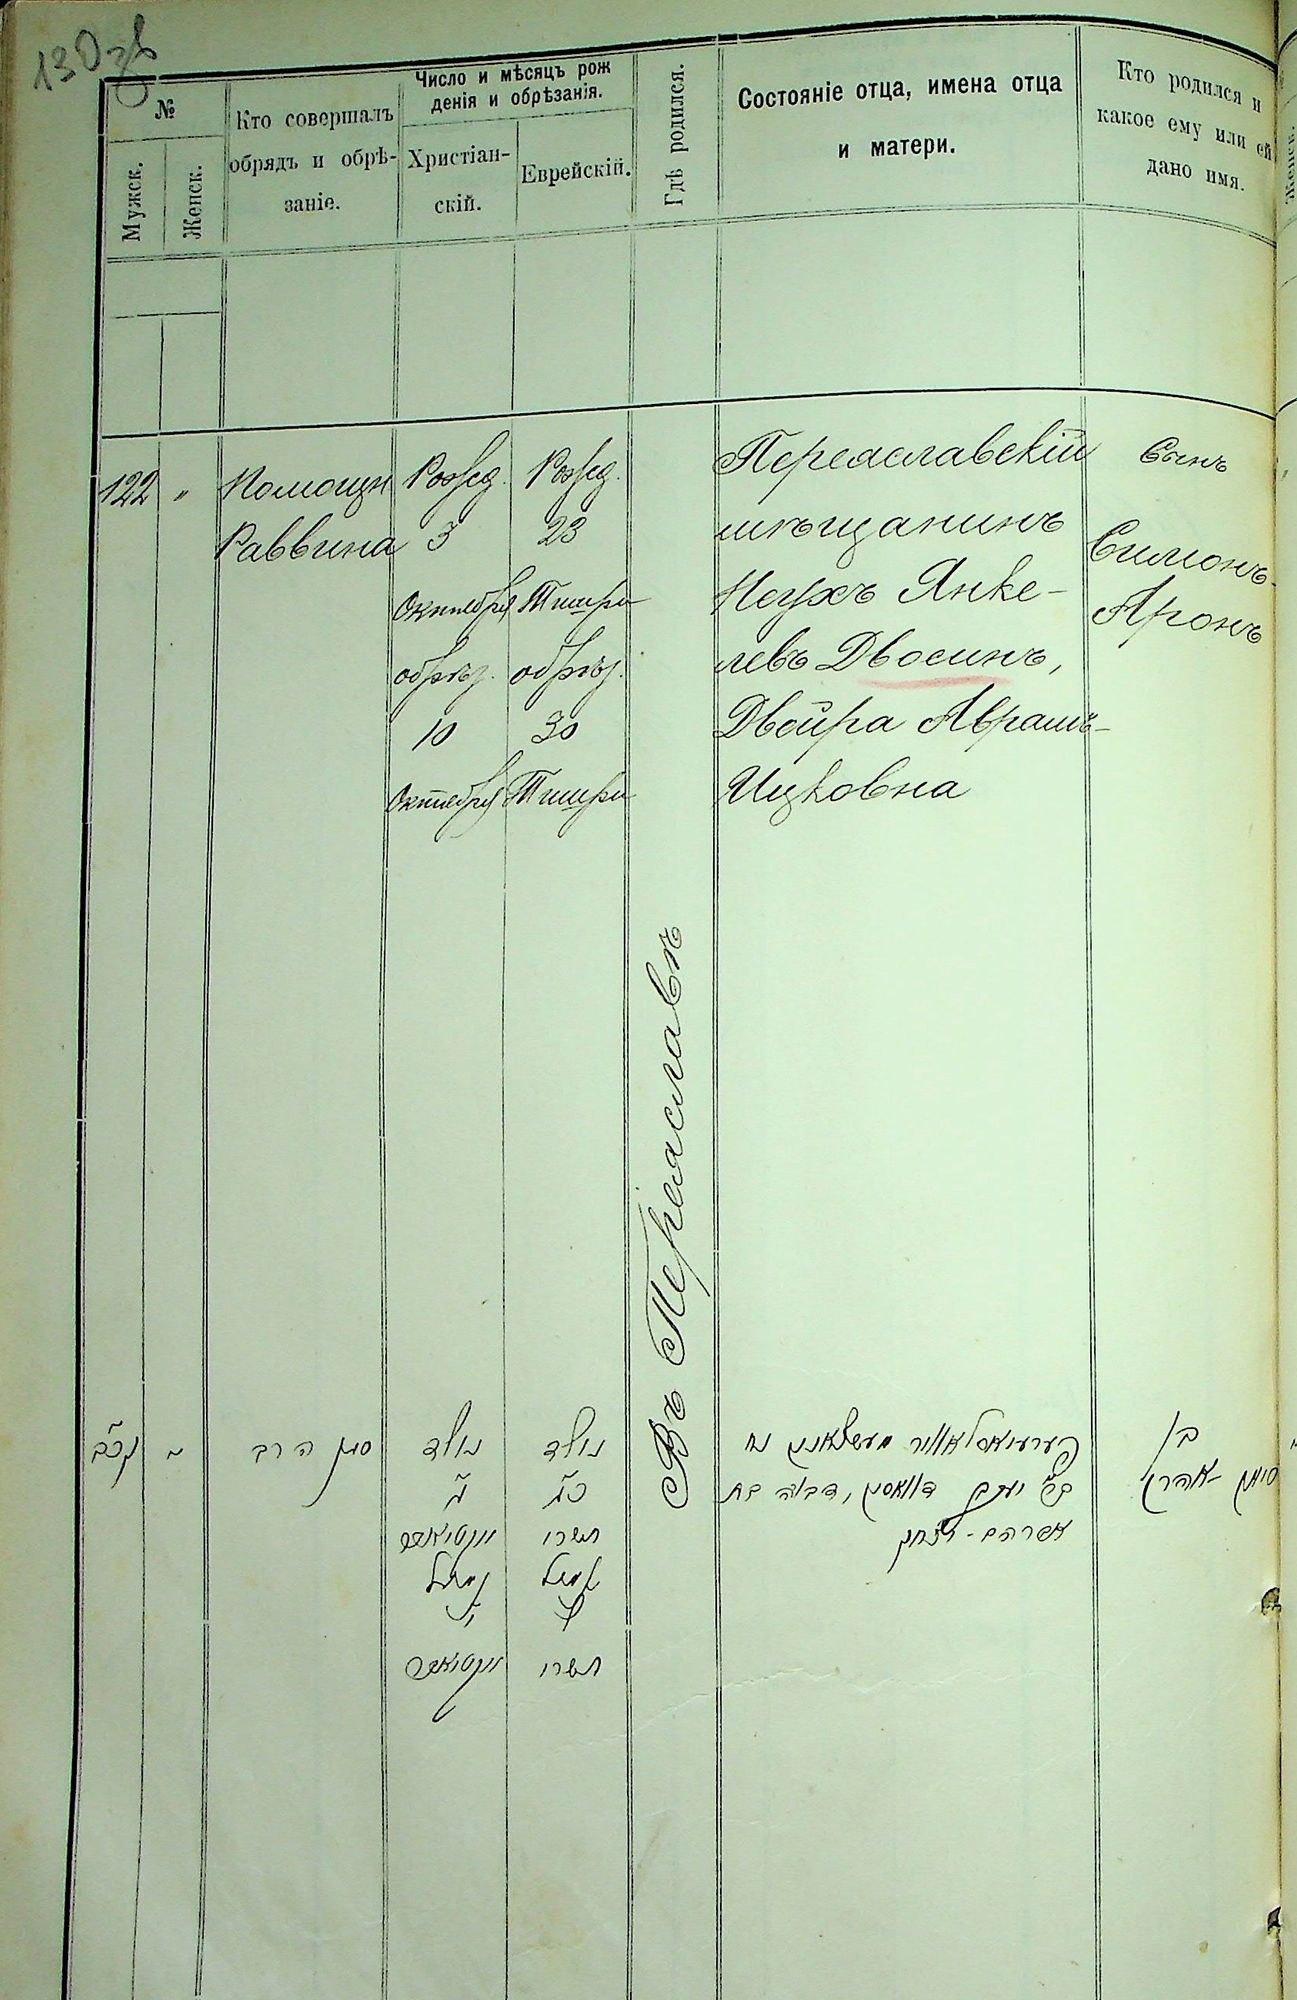 130 зв
№
Мужск.
Женск.
Кто совершалъ
обрядъ и обрѣ-
заніе.
Число и мѣсяцъ рож
денія и обрѣзанія.
Христіан-
скій.
Еврейскій.
Гдѣ родился.
Состояніе отца, имена отца
и матери.
Кто родился и
какое ему или ей
дано имя.
122
"
Помощн
Раввина
Рожд.
3
Октября
обрѣз.
10
Октября
Рожд.
23
Тишри
обрѣз.
30
Тишри
Въ Переяславѣ
Переяславскій
мѣщанинъ
Ноухъ Янке-
левъ Двосинъ,
Двойра Аврамъ-
Ицковна
Сынъ
Симонъ-
Аронъ
קכ"ב
"
סגן הרב
נולד
ג'
אקטיאבר
נימול
י'
אקטיאבר
נולד
כ"ג
תשרי
נימול
ל'
תשרי
נח
יעקב דוואסין, דבורה בת
אברהם-יצחק
בן
סימן-אהרן